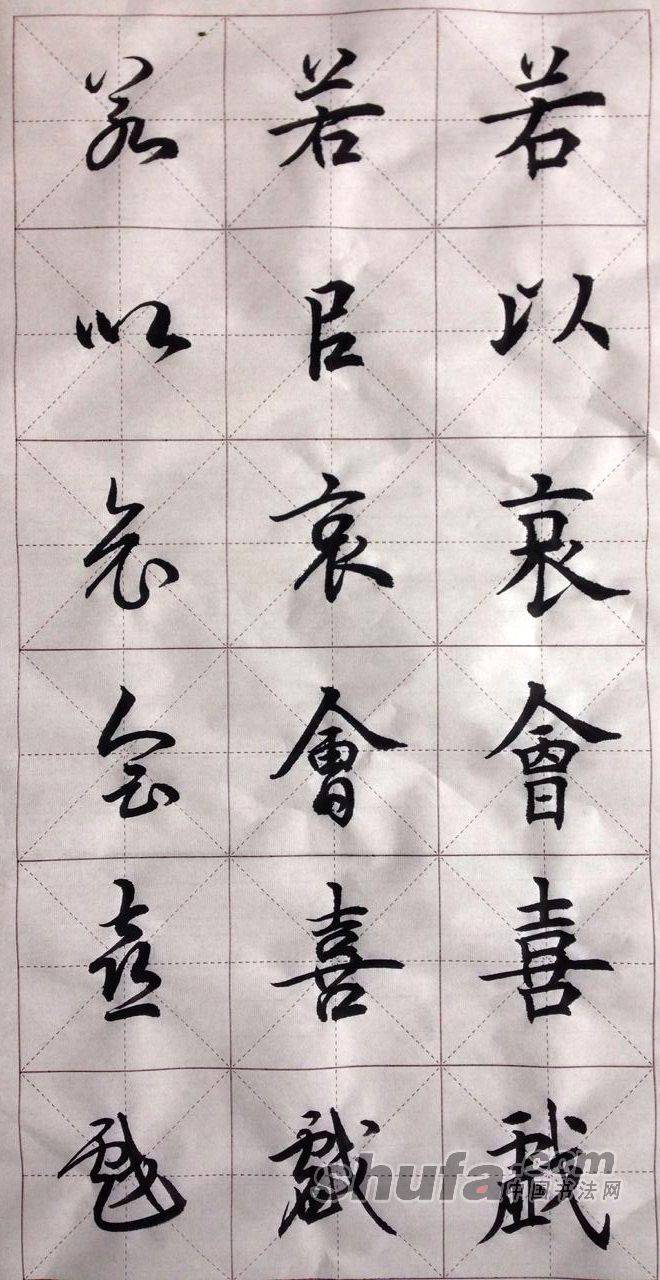 若以哀會喜戲
若㠯哀會喜戲
若以哀会喜戲
shufa.com
中国书法网